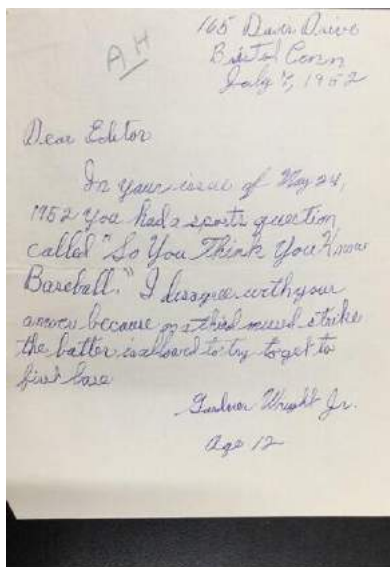 165 Davis Drive
AH
Bristol Conn
July 7, 1952
Dear Editor
In your issue of May 24,
1952 you had a sports question
called "So You Think You Know
Baseball." I disagree with your
answer because on a third missed strike
the batter is allowed to try to get to
first base
Gardner Wright Jr.
age 12